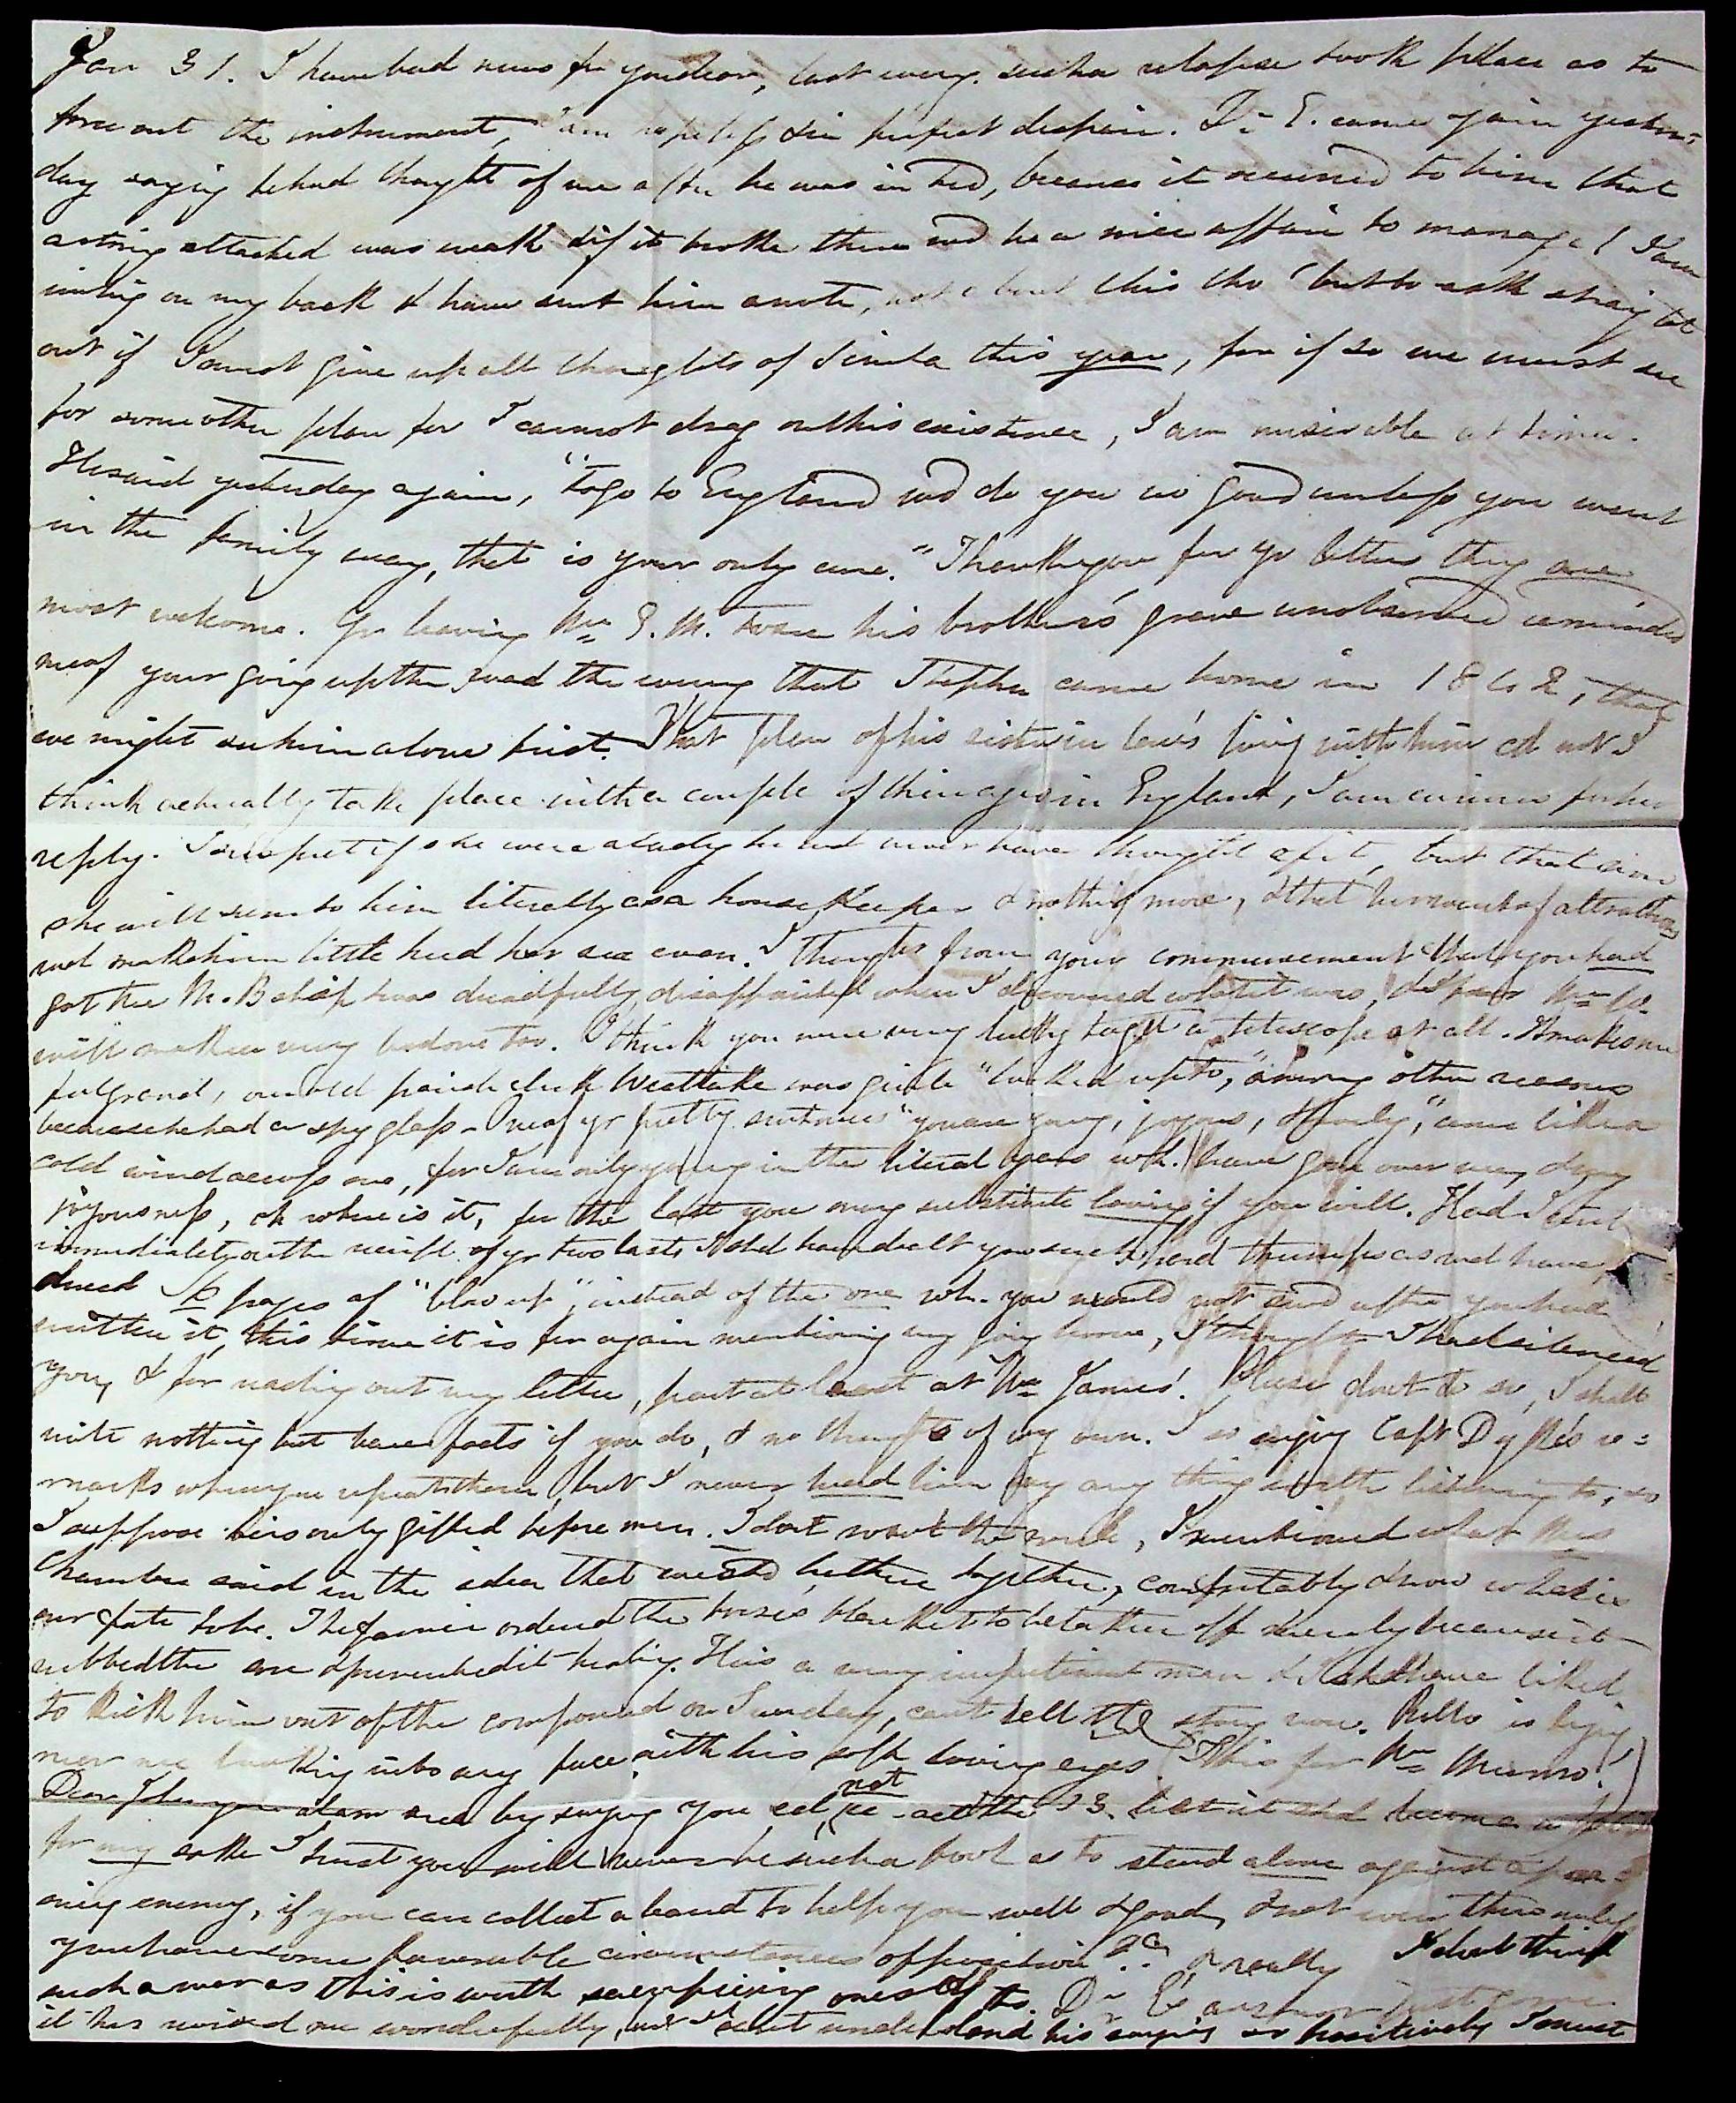 Jan 31. I have bad news for you dear, last eveng. such a relapse took place as to
force out the instrument, I am hopeless & in perfect despair. Dr E. came again yester-
day saying he had thought of me after he was in bed, because it occurred to him that
a string attached was weak & if it broke there wd be a nice affair to manage! I am
writing on my back & have sent him a note, not about this tho' but to ask straight
out if I must give up all thoughts of Simla this year, for if so we must see
for some other plan for I cannot drag on this existence, I am miserable at times.
He said yesterday again, "to go to England wd do you no good unless you went
in the family way, that is your only cure." Thank you for yr letters they are
most welcome. Yr leaving Mr E. M. to see his brother's grave unobserved reminded
me of your going up the road the evening that Stephen came home in 1842, that
we might see him alone first. That plan of his sister in law's living with him cd not I
think actually take place with a couple of their ages in England, I am curious for her
reply. I suspect if she were a lady he wd never have thought of it, but that
she will seem to him literally as a house keeper & nothing more, & that her want of attractions
wd make him little heed her sex even. I thought from your commencement that you had
got the M. B & was dreadfully disappointed when I discovered what it was, & Mr W.
will make a very bad one too. I think you were very lucky to get a telescope at all. It makes me
feel grand, our old parish clerk Westlake was quite "looked up to," among other reasons
because he had a spy glass - One of yr pretty sentences "you are young, joyous, & lovely," came like a
cold wind across me, for I am only young in the literal years wh. have gone over my
joyousness, oh where is it, for the last you may substitute loving if you will. Had I sent
immediately on the receipt of yr two lasts I shd have dealt you such hard thumps as wd have
duced 16 pages of "blow up", instead of the one wh. you would not send after you had
written it, this time it is for again mentioning my going home, I thought I had silenced
you, & for reading out my letter, part at least at Mr James'. Please dont do so, I shall
write nothing but bare facts if you do, & no thoughts of my own. I so enjoy Capt Dyke's re=
marks when you repeat them, but I never heard him say any thing worth listening to, so
I suppose he is only gifted before men. I dont want the, I mentioned what Mrs
Chambers said in the idea that we shd be there together, comfortably & now what is
our fate to be. The Farrier ordered the horses blanket to be taken off merely because it
rubbed the sore & prevented it healing. He is a very impertinent man & I shd have liked
to kick him out of the compound on Sunday, can't tell the story now. Rollo is lying
near me looking into my face with his soft loving eyes (This for Mr Munro!)
Dear John you alarm me by saying you cd not be at the 53. lest it shd become
for my sake I trust you will never be such a fool as to stand alone against a
ning enemy, if you can collect a band to help you well & good, & not even then unless
you have some favorable circumstances of position &c. & really I dont think
such a war as this is worth sacrificing oneself to. Dr E's answer just come
it has revived me wonderfully, but I cant understand his saying so positively I must